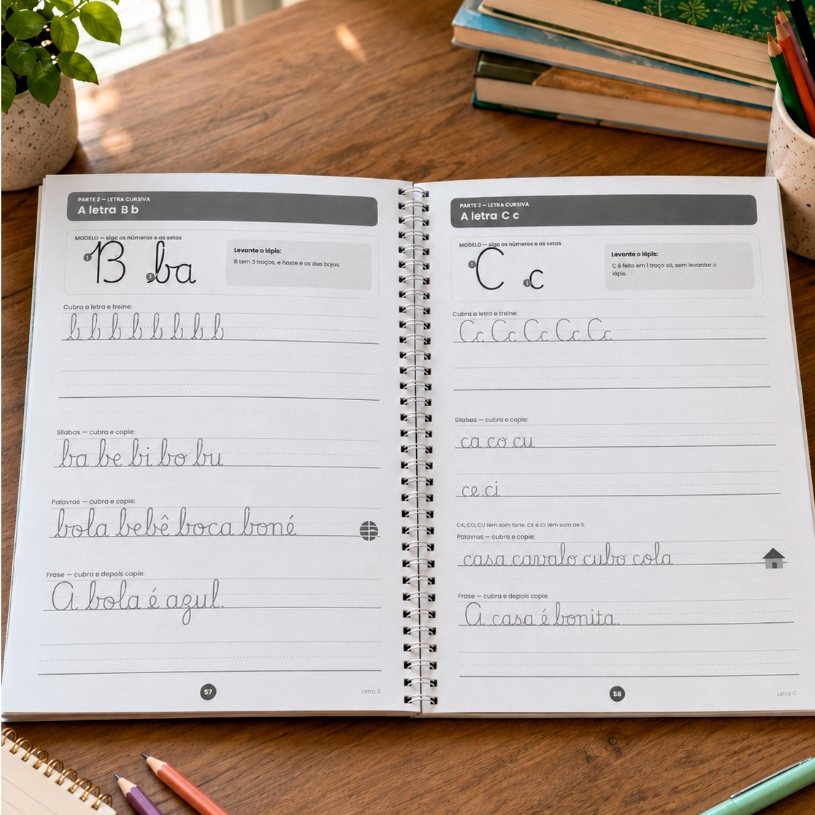 PARTE 2 — LETRA CURSIVA
A letra B b
MODELO — siga os números e as setas
B ba
1
1
Levante o lápis:
B tem 3 traços, e haste e as das bojas.
Cubra a letra e treine:
b b b b b b b b
Sílabas — cubra e copie:
ba be bi bo bu
Palavras — cubra e copie:
bola bebê boca boné
Frase — cubra e depois copie:
A bola é azul.
57
Letra B
PARTE 2 — LETRA CURSIVA
A letra C c
MODELO — siga os números e as setas
C c
1
1
Levante o lápis:
C é feito em 1 traço só, sem levantar o
lápis.
Cubra a letra e treine:
Cc Cc Cc Cc Cc
Sílabas — cubra e copie:
ca co cu
ce.ci
CA, CO, CU têm som forte. CE e CI têm som de S.
Palavras — cubra e copie:
casa cavalo cubo cola
Frase — cubra e depois copie:
A casa é bonita.
58
Letra C